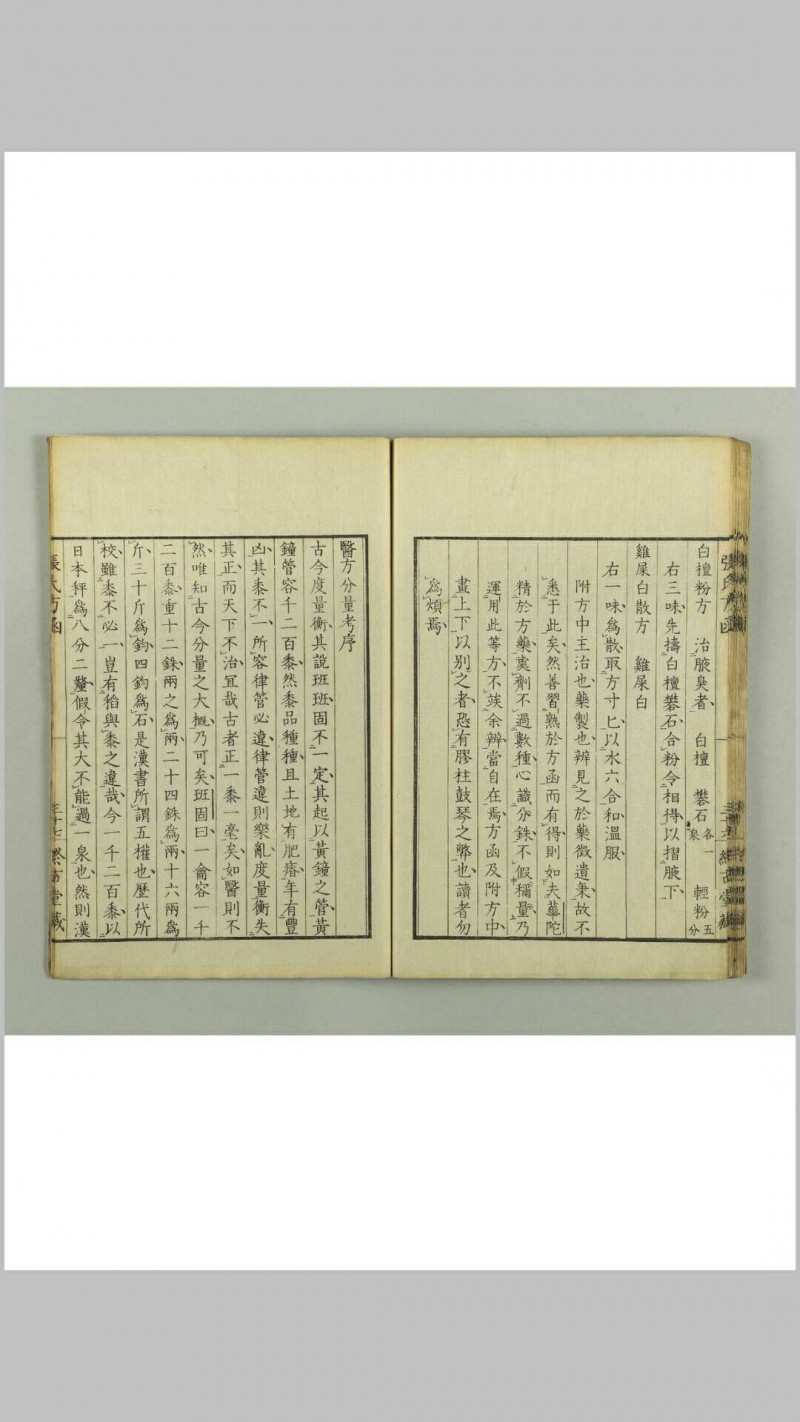 白檀粉方　治腋臭者　白檀　礬石各一泉　輕粉五分
右三味先擣白檀礬石合粉令相得以摺腋下
雞屎白散方　雞屎白
右一味爲散取方寸匕以水六合和溫服
附方中主治也藥製也辨見之於藥徵遺秉故不
悉于此矣然善習熟於方函而有得則如夫華陀
精於方藥處劑不過數種心識分銖不假稱量乃
運用此等方不竢余辨當自在焉方函及附方中
畫上下以別之者恐有膠柱鼓琴之弊也讀者勿
爲煩焉
醫方分量考序
古今度量衡其說班班固不一定其起以黃鐘之管黃
鐘管容千二百黍然黍品種種且土地有肥瘠年有豐
凶其黍不一所容律管必違律管違則樂亂度量衡失
其正而天下不治宜哉古者正一黍一毫矣如醫則不
然唯知古今分量之大概乃可矣班固曰一龠容一千
二百黍重十二銖兩之爲兩二十四銖爲兩十六兩爲
斤三十斤爲鈞四鈞爲石是漢書所謂五權也歷代所
校雖黍不必一豈有稻與黍之違哉今一千二百黍以
日本秤爲八分二釐假令其大不能過一泉也然則漢
張氏方函
三十七